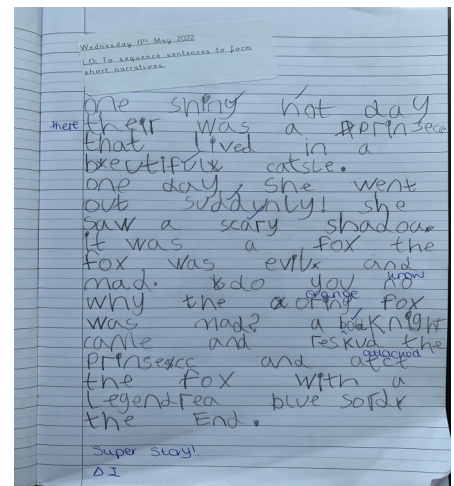 Wednesday 11th May 2022
L.O: To sequence sentences to form
short narratives.
one shiny hot day
there their was a prinsece
that lived in a
beutiful catsle.
one day, she went
out suddunly! she
saw a scary shadow
it was a fox the
fox was evil and
know
mad. do you no
orange
why the oring fox
was mad? a bad Knight
came and reskud the
attacked
prinsecc and atct
the fox with a
Legendrea blue sord
the End.
Super story!